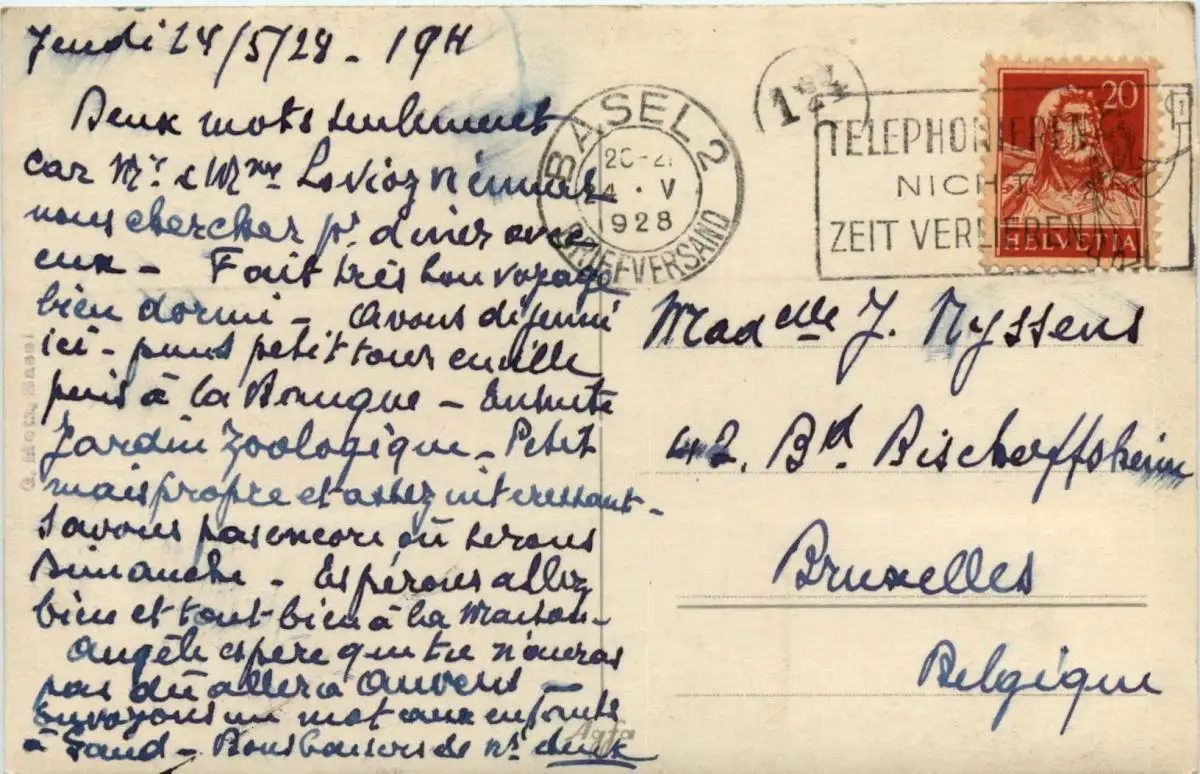 Jeudi 24/5/28 - 19H
Deux mots seulement
car Mr. & Mme Lovioz viennent
nous chercher pr. diner avec
eux - Fait très bon voyage
bien dormi - Avons déjeuné
ici - puis petit tour en ville
puis à la Banque - Ensuite
Jardin Zoologique - Petit
mais propre et assez intéressant -
Savons pas encore où serons
Dimanche - Espérons allez
bien et tout bien à la Maison -
Angèle espère que tu n'auras
pas dû aller à Anvers -
Envoyons un mot aux enfants
à Gand - Bons baisers de ns. deux
BASEL 2
20-21
4 · V
1928
BRIEFVERSAND
TELEPHONIEREN
NICHT
ZEIT VERLIEREN
20
HELVETIA
Madelle J. Nyssens
42. Bd. Bischoffsheim
Bruxelles
Belgique
Agfa